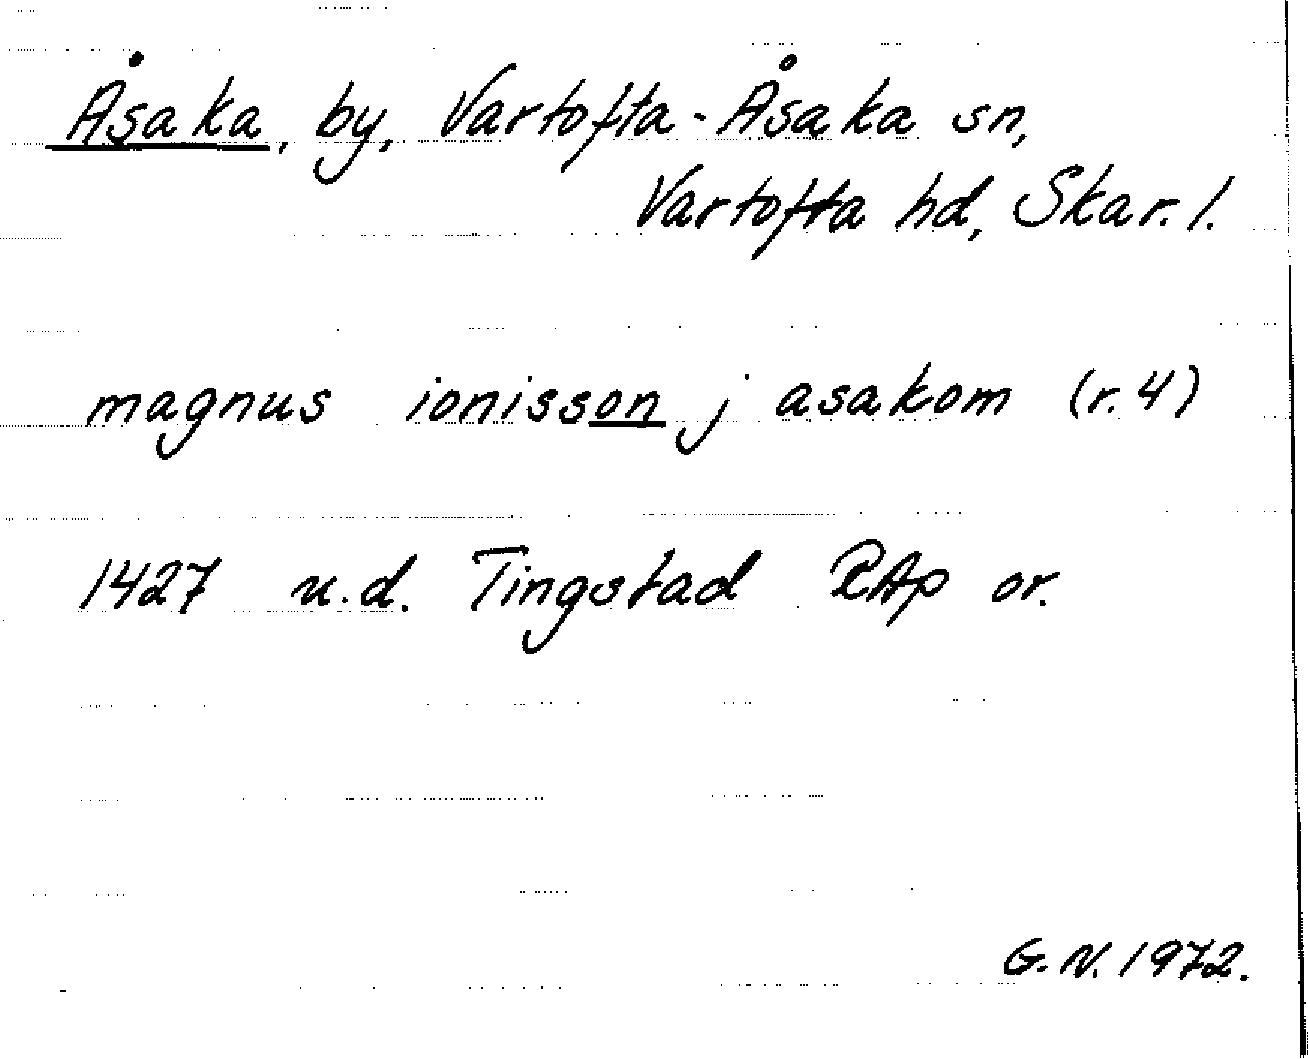 Åsaka, by, Vartofta-Åsaka sn,
Vartofta hd, Skar. l.
magnus ionisson j asakom (r. 4)
1427 u.d. Tingstad RAp or.
G.N. 1972.